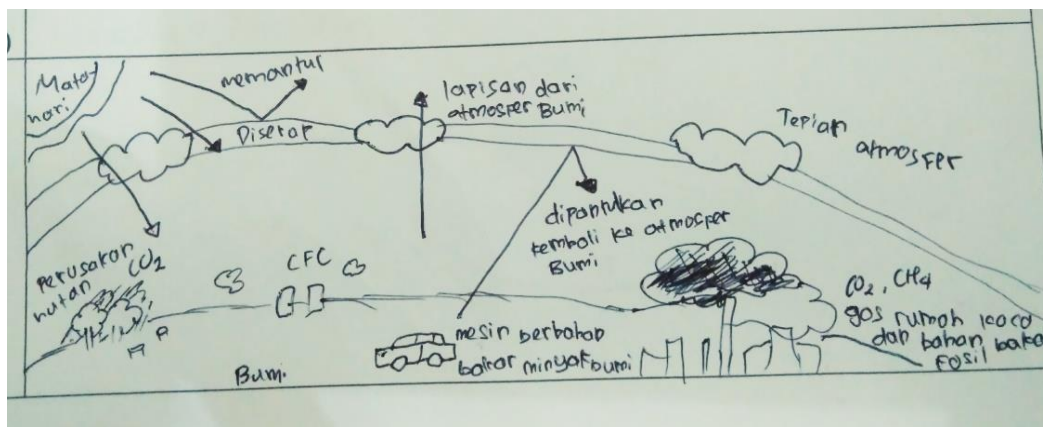 Matahari
memantur
Diserap
lapisan dari
atmosfer Bumi
Tepian
atmosfer
dipantulkan
kembali ke atmosfer
Bumi
perusakan
hutan
CO2
CFC
mesin berbahan
bakar minyak bumi
CO2, CH4
gas rumah kaca
dan bahan baka
fosil
Bumi